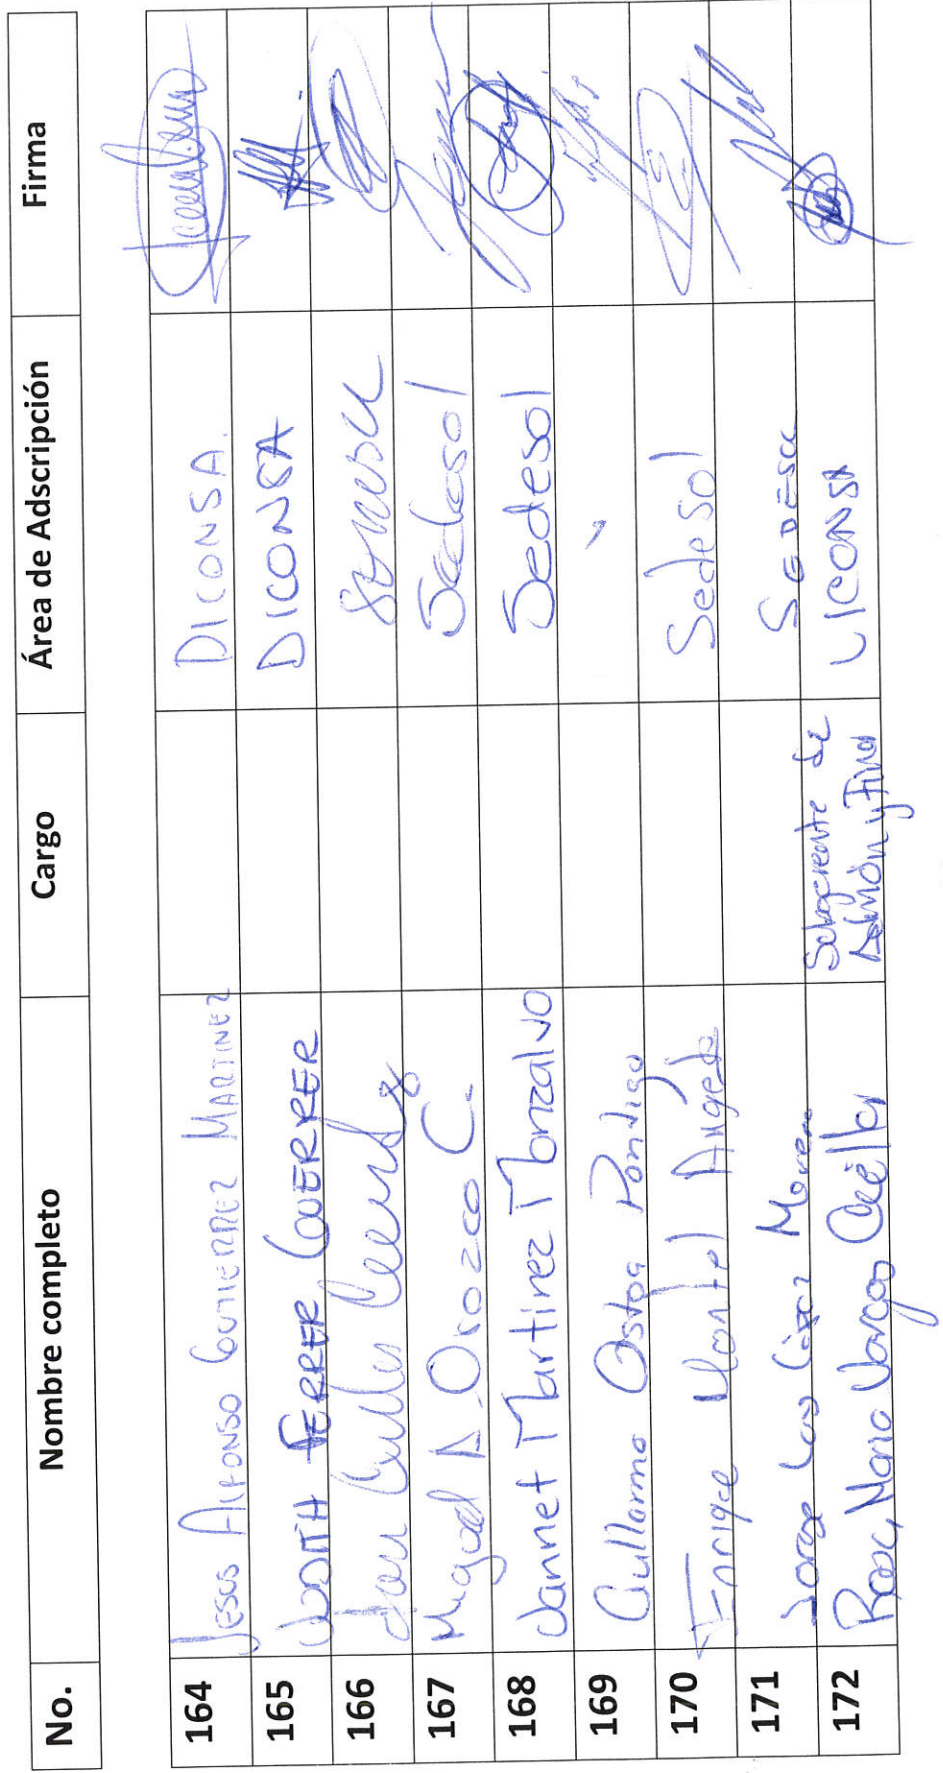 No. Nombre completo Cargo Área de Adscripción Firma
164 Jesus Alfonso Gutierrez Martinez DICONSA.
165 Judith Ferrer Guerrer DICONSA
166 Juan Carlos
167 Miguel A. Orozco C. Sedesol
168 Jannet Martinez Monzalvo Sedesol
169 Guillermo Pontigo
170 Enrique Montiel Angeles Sedesol
171 Jorge Luis Moreno SEDESOL
172 Rosa Maria Vargas Cuéllar Subgerente de
Admón y Finan
LICONSA